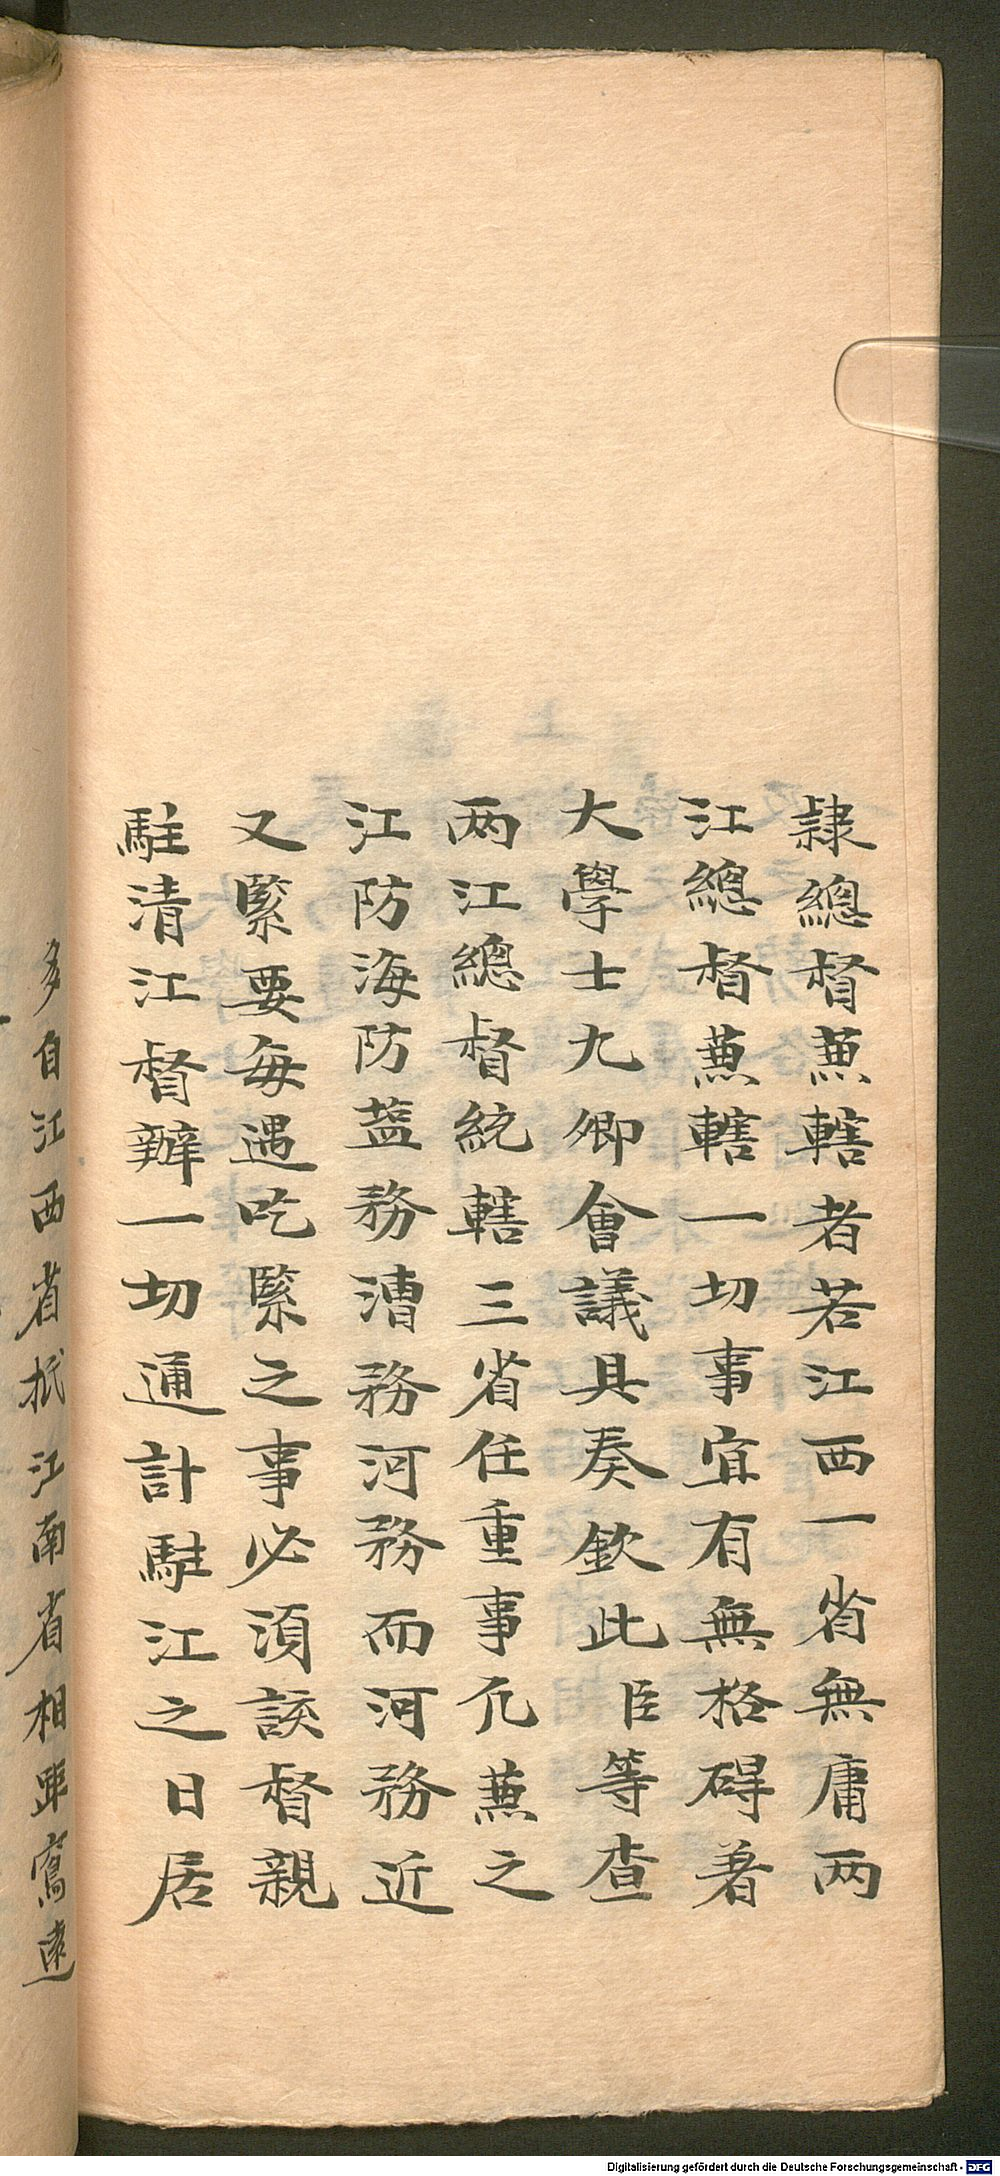 隷總督兼轄者若江西一省無庸两
江總督兼轄一切事宜有無格碍着
大學士九卿會議具奏欽此臣等查
两江總督統轄三省任重事兀兼之
江防海防葢務漕務河務而河務近
又緊要每遇吃緊之事必湏該督親
駐清江督辦一切通計駐江之日居
多自江西省抵江南省相距寫遠
Digitalisierung gefördert durch die Deutsche Forschungsgemeinschaft - DFG